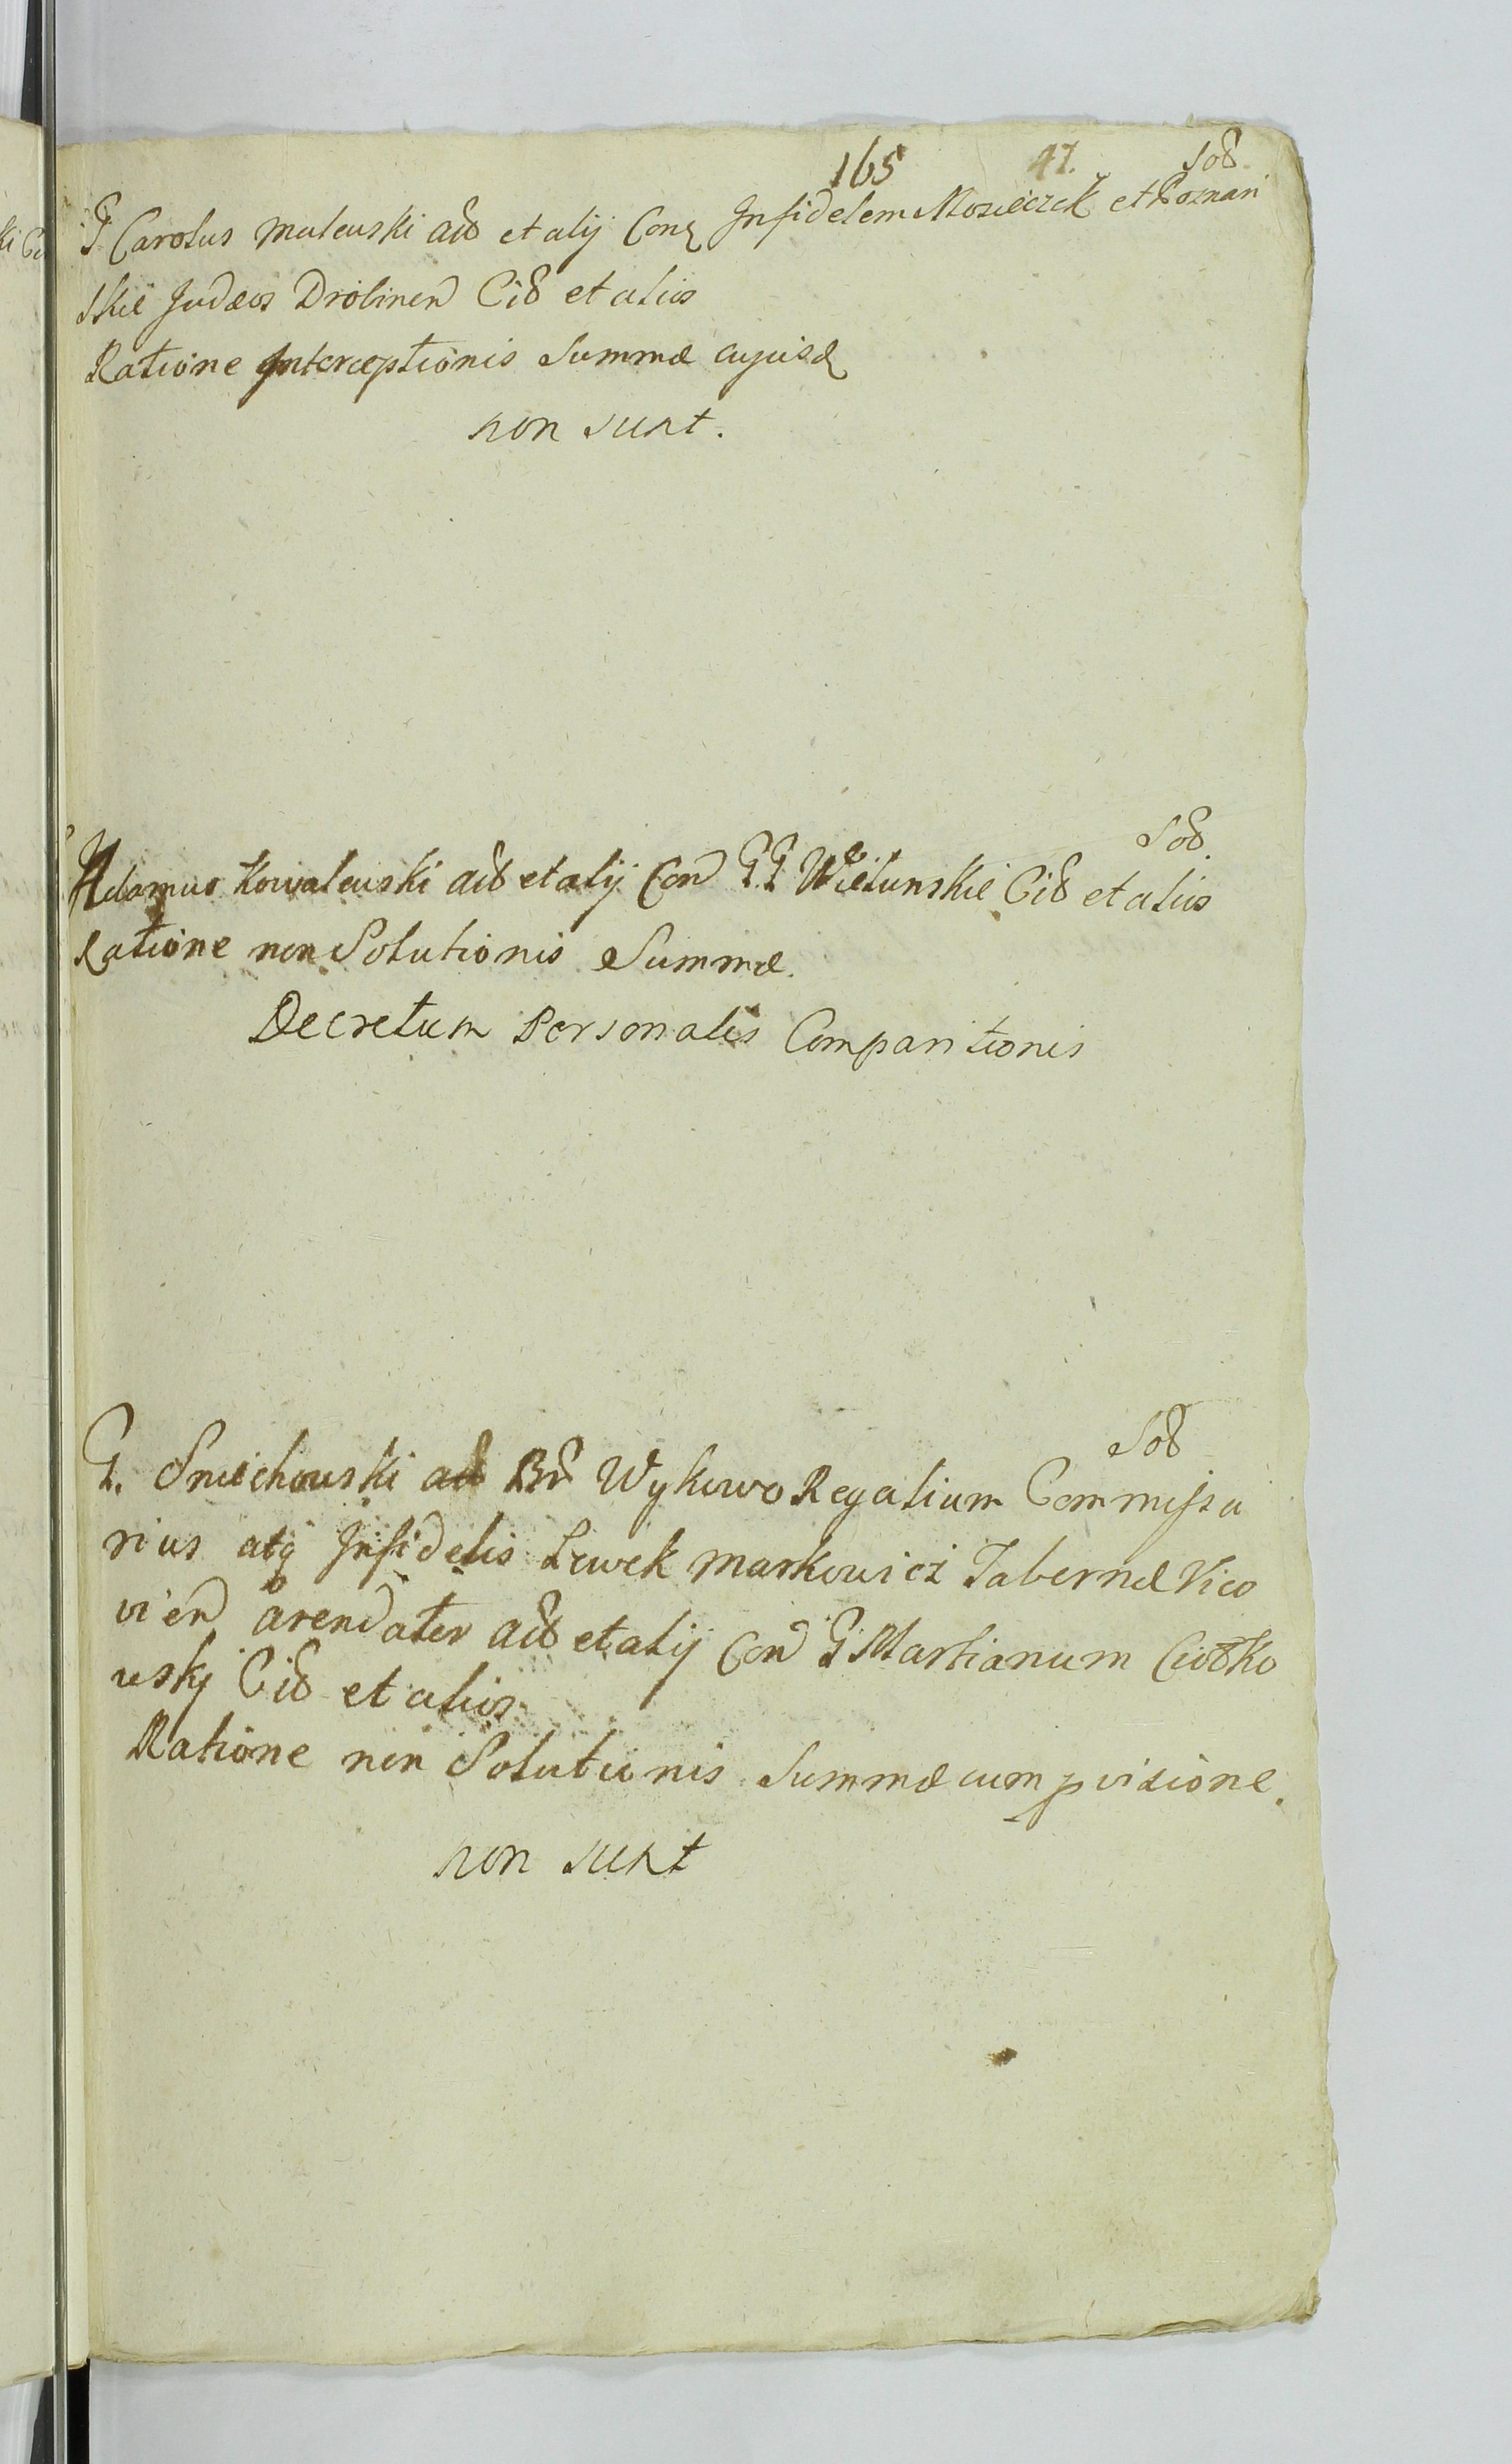 165 47. Sob
G Carolus Maleuski aeb et alij Con Infidelem Mosieczek et Poznan
skie Judæos Drobinen Cib et alios
Ratione Interceptionis Summæ cujusd
non sunt.
Sob.
G Adamus Kowaleuski aeb et alij Con GG Wielunskie Cib et alios
Ratione non Solutionis Summæ.
Decretum Personalis Comparitionis
Sob
G. Smiechouski ad Br Wykowo Regalium Commissa
rius atq Infidelis Lewek Markowicz Tabernæ Vico
vien arendator aeb et alij Con G Martianum Ciołko
uskj Cib et alios
Ratione non Solutionis Summæ cum pvisione.
non sunt